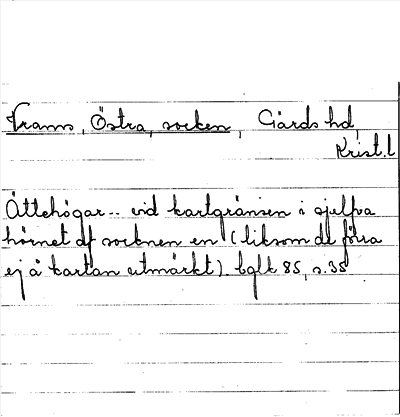 Vrams, Östra, socken, Gärds hd,
Krist. l
Ättehögar.. vid kartgränsen i sjelfva
hörnet af socknen en (liksom de förra
ej å kartan utmärkt). bglk 85, s. 35